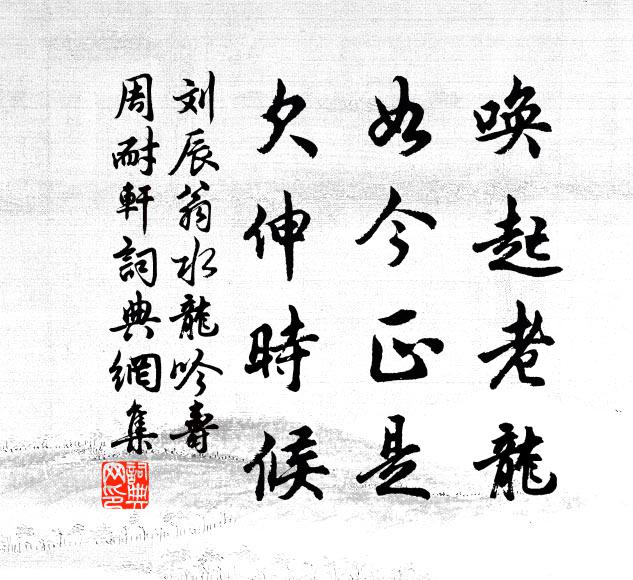 唤起老龍
如今正是
欠伸時候
刘辰翁水龍吟壽
周耐軒詞典網集
詞典网印